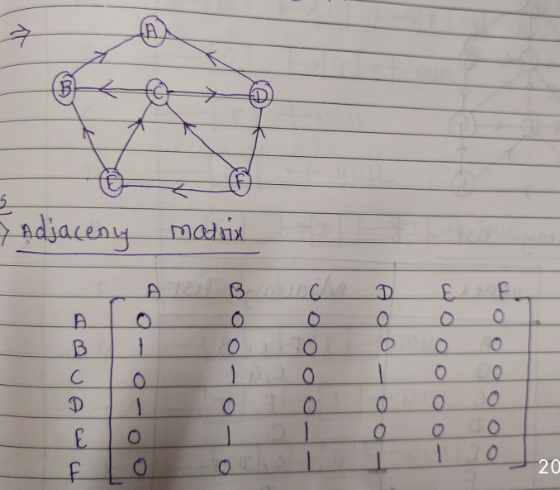 ⇒
A
B C D
E F
s
⇒ Adjaceny matrix
A B C D E F
A 0 0 0 0 0 0
B 1 0 0 0 0 0
C 0 1 0 1 0 0
D 1 0 0 0 0 0
E 0 1 1 0 0 0
F 0 0 1 1 1 0
20